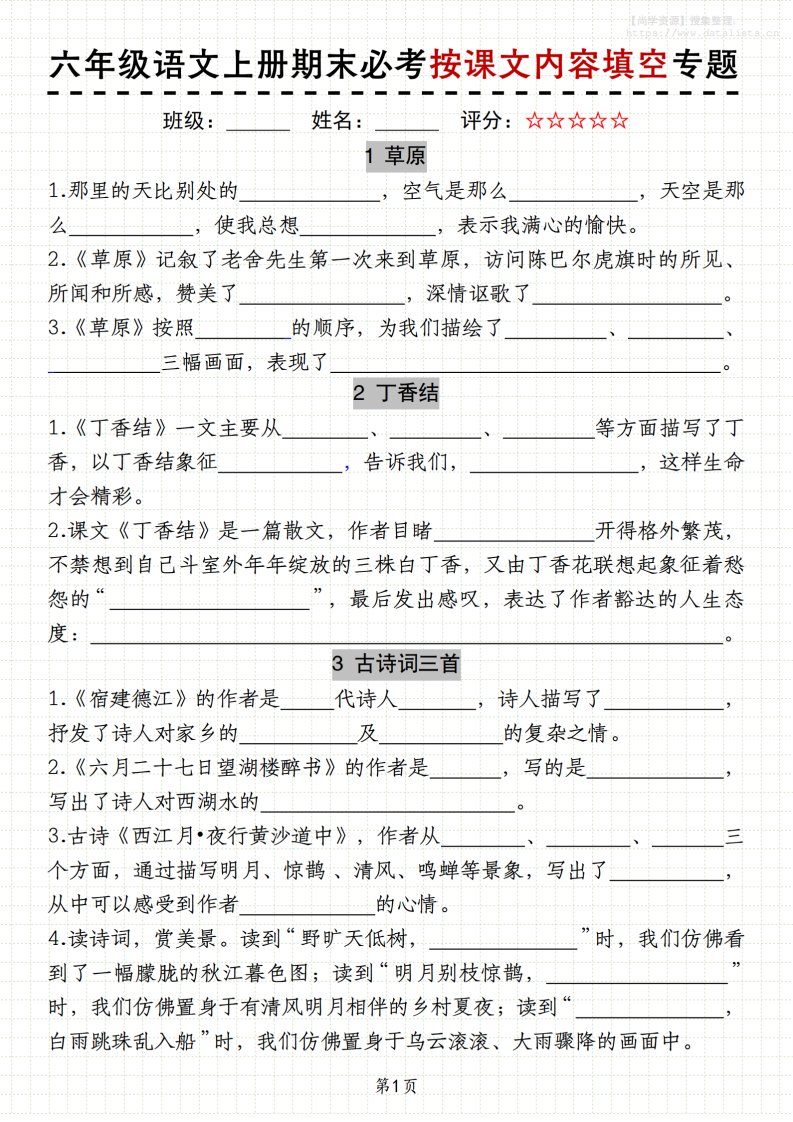 【尚学资源】搜集整理
https://www.datalists.cn
六年级语文上册期末必考按课文内容填空专题
班级：______ 姓名：______ 评分：☆☆☆☆☆
1 草原
1.那里的天比别处的____________，空气是那么____________，天空是那
么____________，使我总想____________，表示我满心的愉快。
2.《草原》记叙了老舍先生第一次来到草原，访问陈巴尔虎旗时的所见、
所闻和所感，赞美了________________，深情讴歌了__________________。
3.《草原》按照_________的顺序，为我们描绘了__________、___________、
___________三幅画面，表现了______________________________________。
2 丁香结
1.《丁香结》一文主要从________、_________、_________等方面描写了丁
香，以丁香结象征____________，告诉我们，________________，这样生命
才会精彩。
2.课文《丁香结》是一篇散文，作者目睹_______________开得格外繁茂，
不禁想到自己斗室外年年绽放的三株白丁香，又由丁香花联想起象征着愁
怨的“___________________”，最后发出感叹，表达了作者豁达的人生态
度：______________________________________________________________。
3 古诗词三首
1.《宿建德江》的作者是_____代诗人_______，诗人描写了___________，
抒发了诗人对家乡的___________及____________的复杂之情。
2.《六月二十七日望湖楼醉书》的作者是_______，写的是_____________，
写出了诗人对西湖水的________________________。
3.古诗《西江月•夜行黄沙道中》，作者从________、________、________三
个方面，通过描写明月、惊鹊 、清风、鸣蝉等景象，写出了___________，
从中可以感受到作者_____________的心情。
4.读诗词，赏美景。读到“野旷天低树，______________”时，我们仿佛看
到了一幅朦胧的秋江暮色图；读到“明月别枝惊鹊，_________________”
时，我们仿佛置身于有清风明月相伴的乡村夏夜；读到“______________，
白雨跳珠乱入船”时，我们仿佛置身于乌云滚滚、大雨骤降的画面中。
第1页